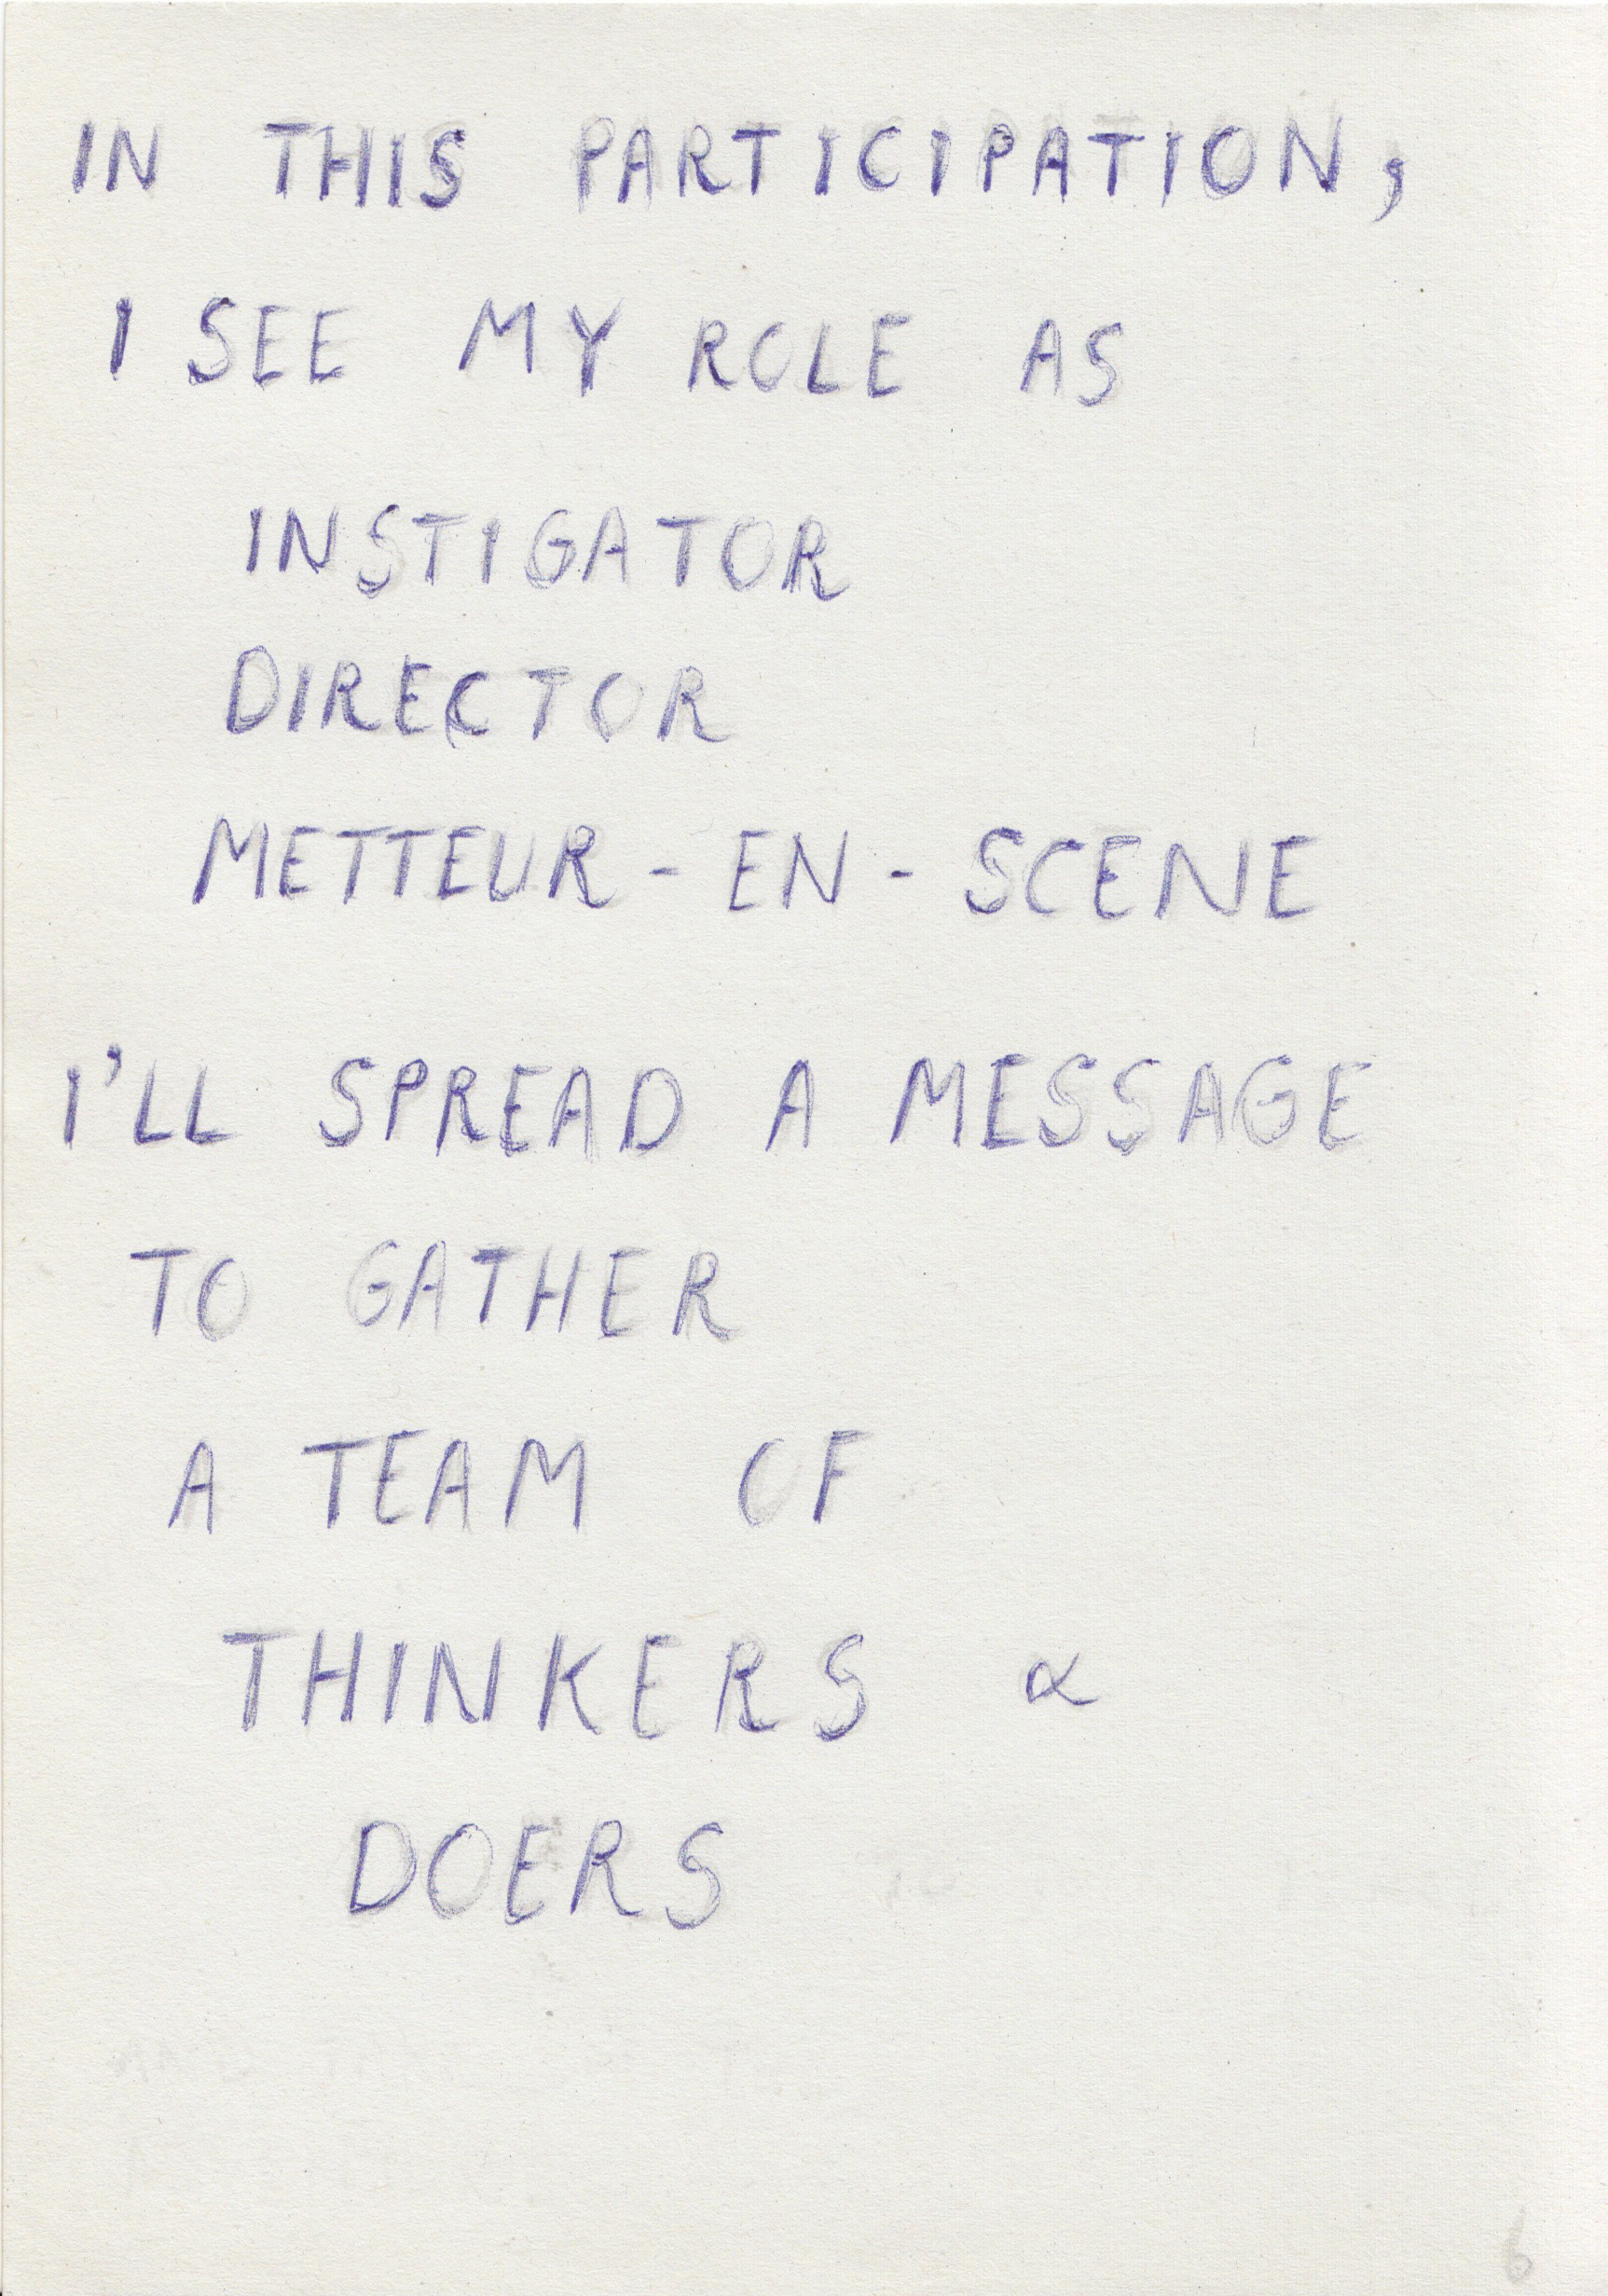 IN THIS PARTICIPATION,
I SEE MY ROLE AS
INSTIGATOR
DIRECTOR
METTEUR-EN-SCENE
I'LL SPREAD A MESSAGE
TO GATHER
A TEAM OF
THINKERS &
DOERS
6